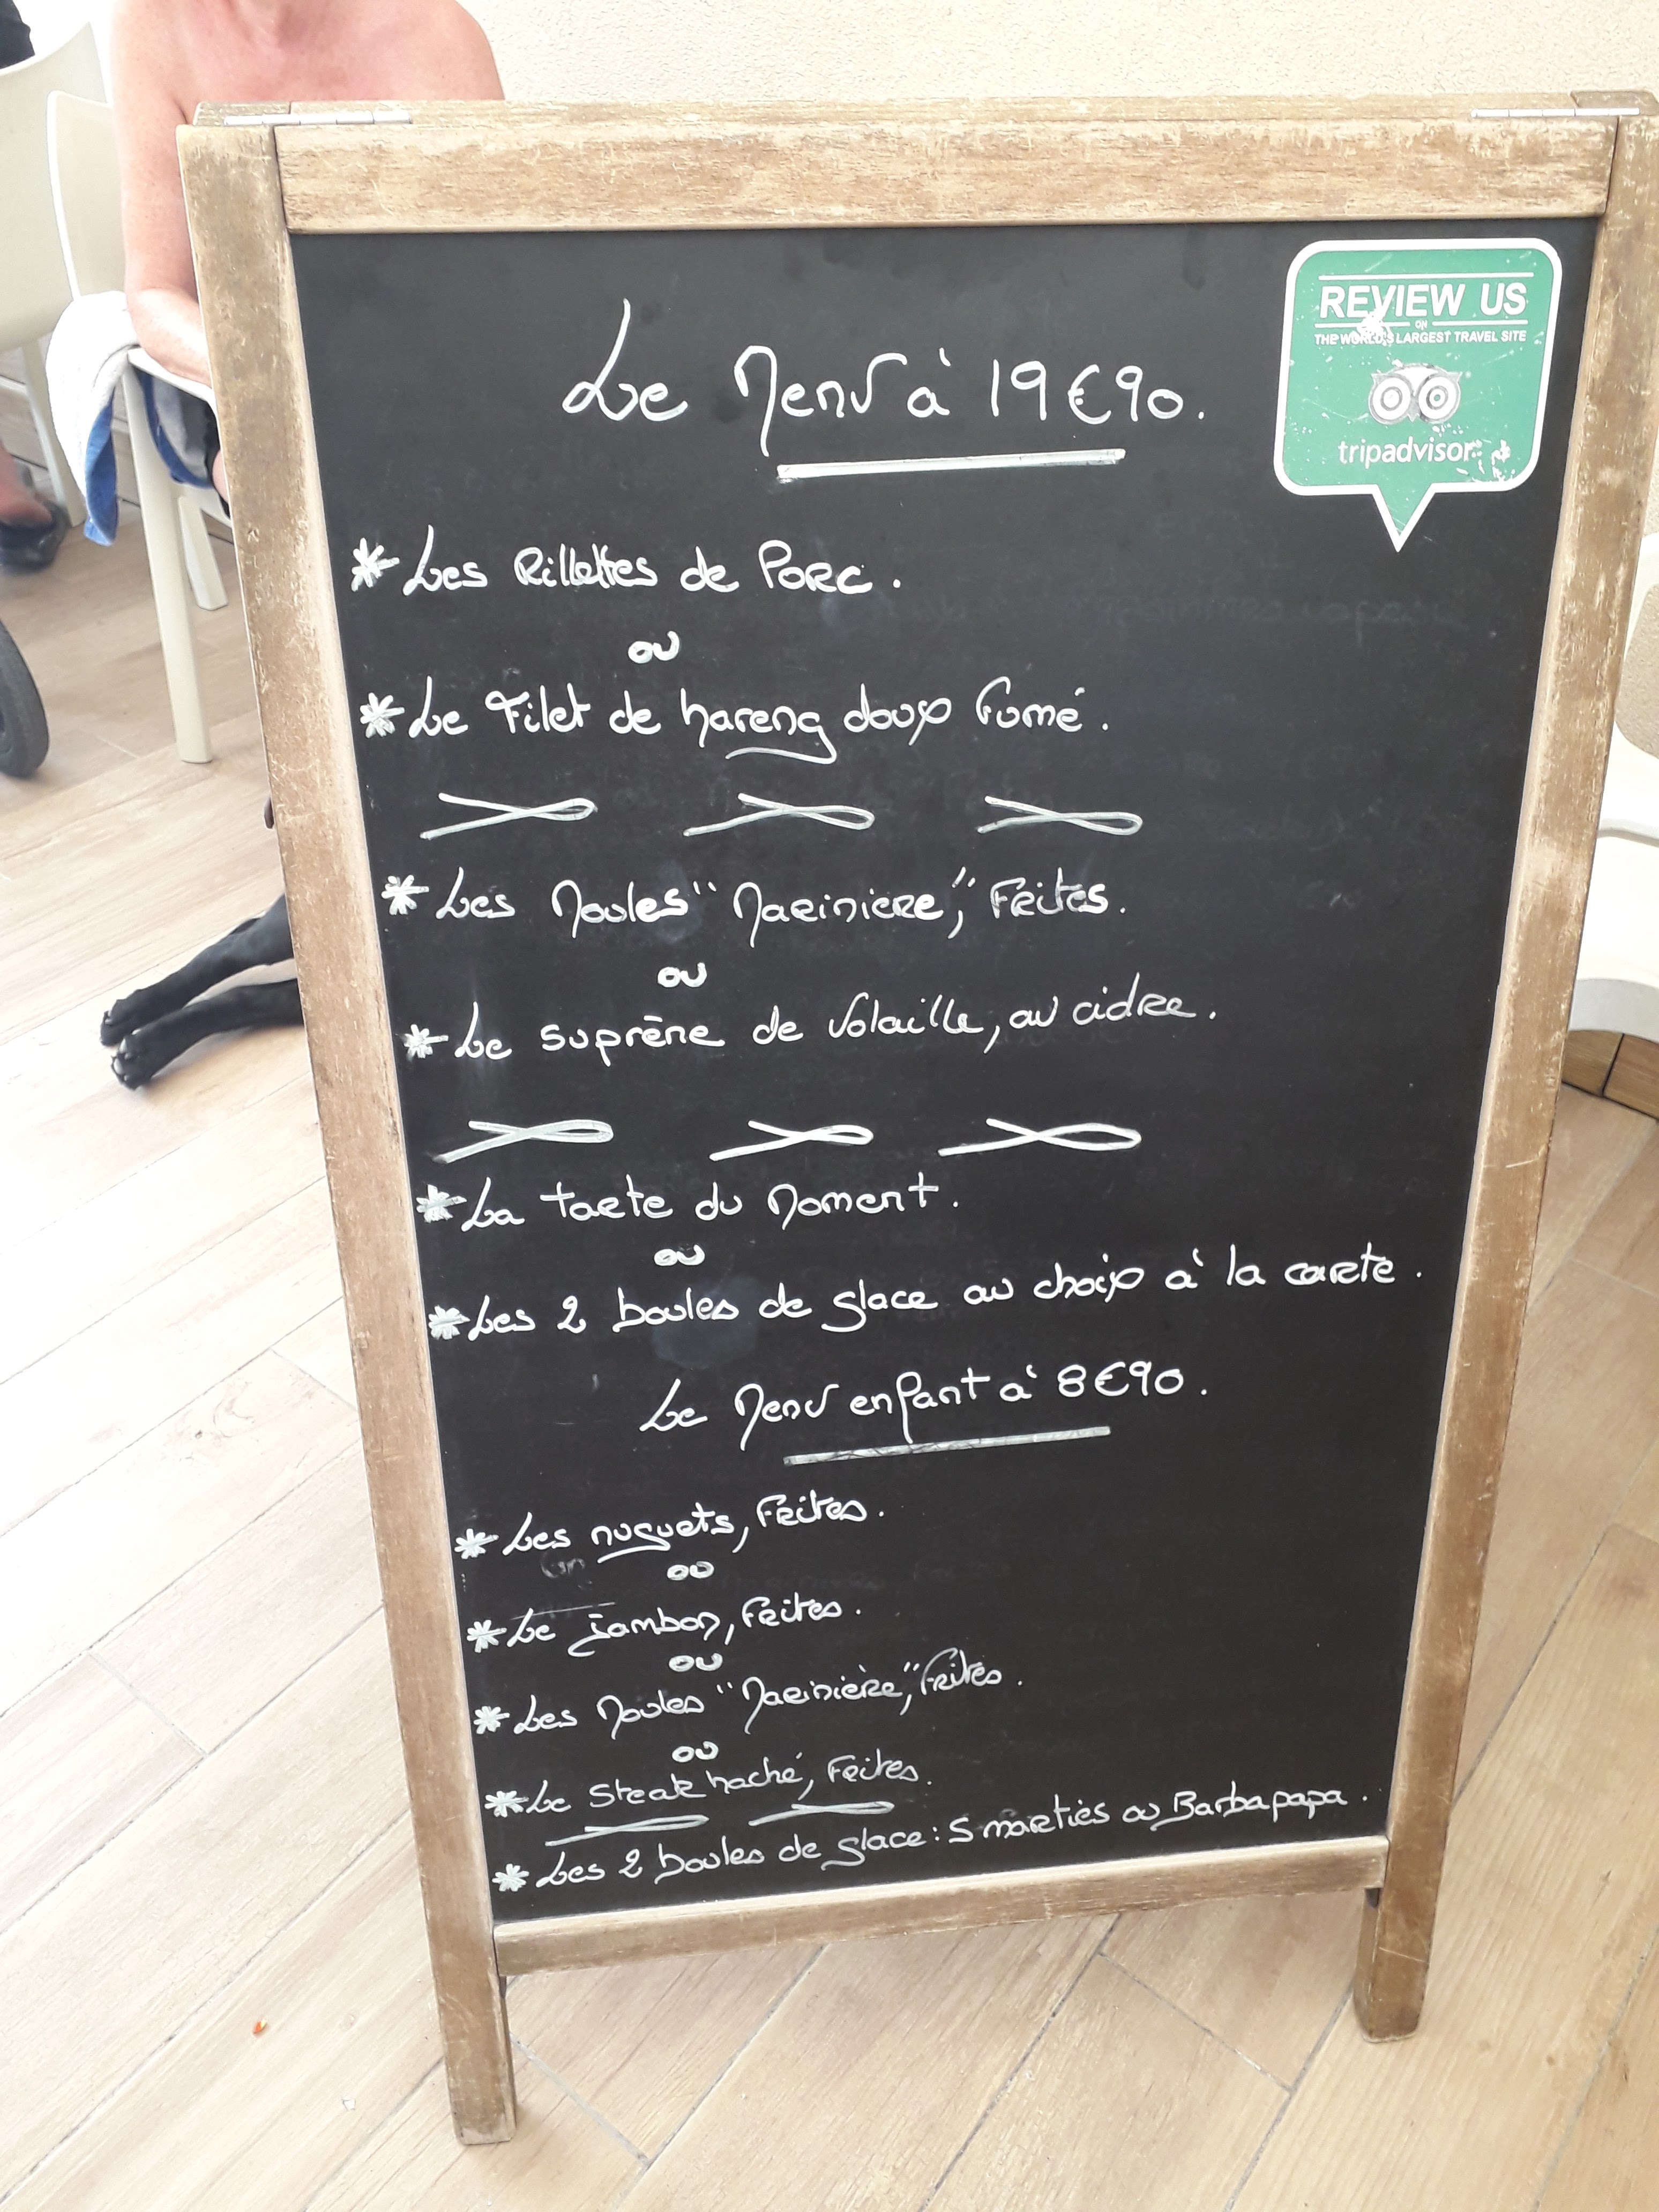 Le Menu à 19€90.
REVIEW US
ON
THE WORLD'S LARGEST TRAVEL SITE
tripadvisor
* Les Rillettes de Porc.
ou
* Le Filet de hareng doux fumé.
* Les Moules "Mariniere", Frites.
ou
* Le suprême de Volaille, au cidre.
* La tarte du Moment.
ou
* Les 2 boules de glace au choix à la carte.
Le Menu enfant à 8€90.
* Les nuguets, Frites.
ou
* Le jambon, Frites.
ou
* Les Moules "Marinière", Frites.
ou
* Le Steak haché, Frites.
* Les 2 boules de glace : Smartiés ou Barbapapa.